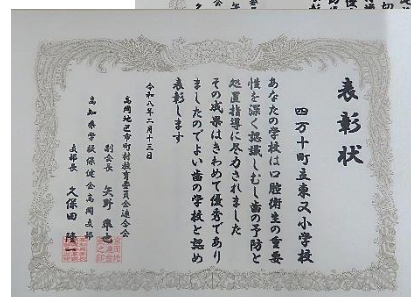 表彰状
四万十町立東又小学校
あなたの学校は口腔衛生の重要
性を深く認識しむし歯の予防と
処置指導に尽力されました
その成果はきわめて優秀であり
ましたのでよい歯の学校と認め
表彰します
令和八年二月十三日
高岡地区市町村教育委員会連合会
副会長 矢野 準也
高知県学校保健会高岡支部
支部長 久保田 隆一